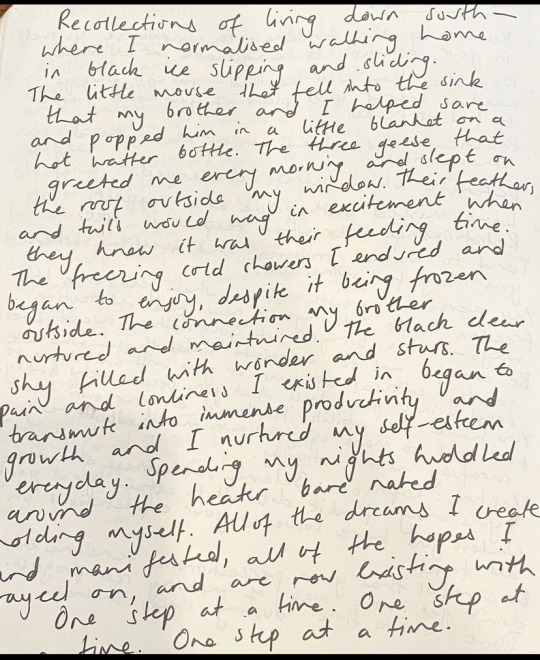 Recollections of living down south—
where I normalised walking home
in black ice slipping and sliding.
The little mouse that fell into the sink
that my brother and I helped save
and popped him in a little blanket on a
hot watter bottle. The three geese that
greeted me every morning and slept on
the roof outside my window. Their feathers,
and tails would wag in excitement when
they knew it was their feeding time.
The freezing cold showers I endured and
began to enjoy, despite it being frozen
outside. The connection my brother
nurtured and maintained. The black clear
sky filled with wonder and stars. The
pain and lonliness I existed in began to
transmute into immense productivity and
growth and I nurtured my self-esteem
everyday. Spending my nights huddled
around the heater bare naked
holding myself. All of the dreams I create
and manifested, all of the hopes I
rayed on, and are now existing with
One step at a time. One step at
a time. One step at a time.